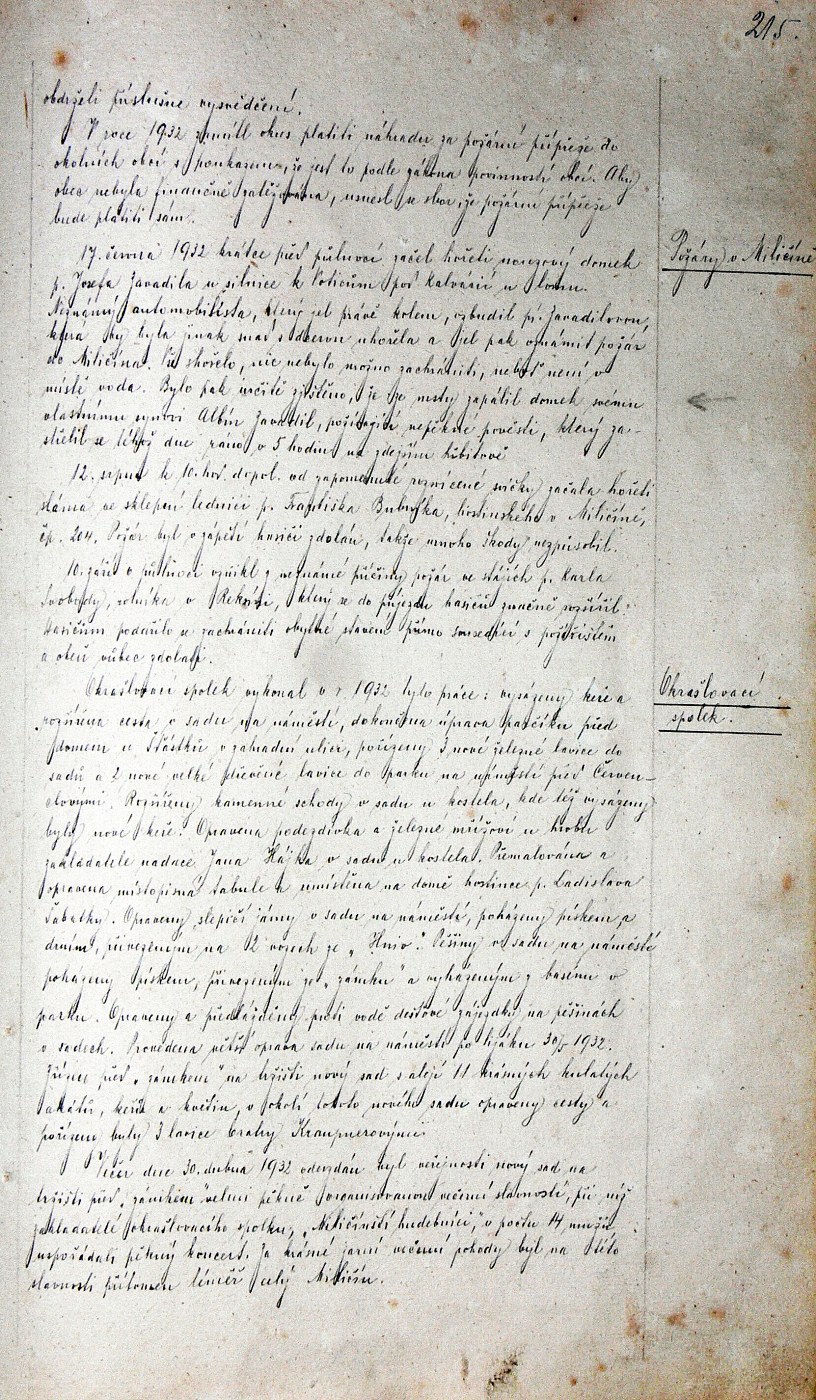 215.
obdrželi příslušné vysvědčení.
V roce 1932 okres platiti náhradu za požární přípřeže do
okolních obcí s poukazem, že jest to podle zákona povinností obcí. Aby
obec nebyla finančně zatěžována, usnesl se sbor, že požární přípřeže
bude platiti sám.
Požáry v Miličíně
17. června 1932 krátce před půlnocí začal hořeti nouzový domek
p. Josefa Zavadila u silnice k Voticům pod Kalvárií u lomu.
Neznámý automobilista, který jel právě kolem, vzbudil pí. Zavadilovou,
která by byla jinak snad s dcerou uhořela a jel pak oznámit požár
do Miličína. Vše shořelo, nic nebylo možno zachrániti, neboť není v
místě voda. Bylo pak určitě zjištěno, že ze msty zapálil domek svému
vlastnímu synovi Albín Zavadil, požívající nepěkné pověsti, který za-
střelil se téhož dne ráno v 5 hodin na zdejším hřbitově
12. srpna k 10. hod. dopol. od zapomenuté rozsvícené svíčky začala hořeti
sláma ve sklepení lednici p. Františka hostinského v Miličíně,
čp. 204. Požár byl v zápětí hasiči zdolán, takže mnoho škody nezpůsobil.
10. září o půlnoci vznikl z neznámé příčiny požár ve stájích p. Karla
Svobody, rolníka v který se do příjezdu hasičů značně rozšířil.
Hasičům podařilo se zachrániti obytné stavení přímo sousedící s požářištěm
a oheň vůbec zdolati.
Okrašlovací
spolek.
Okrašlovací spolek vykonal v r. 1932 tyto práce: vysázeny keře a
rozšířena cesta v sadu na náměstí, dokončena úprava parčíku před
domem u Šťástků v zahradní ulici, pořízeny 3 nové železné lavice do
sadů a 2 nové velké dřevěné lavice do parku na náměstí před Červen-
clovými. Rozšířeny kamenné schody v sadu u kostela, kde též vysázeny
byly nové keře. Opravena podezdívka a železné mřížoví u hrobu
zakladatele nadace Jana Hájka v sadu u kostela. Přemalována a
opravena místopisná tabule a umístěna na domě hostince p. Ladislava
Šabatky. Opraveny slepičí jámy v sadu na náměstí, poházeny pískem a
drním, přivezeným na 2 vozech ze „ Pěšiny v sadu na náměstí
poházeny pískem, přivezeným ze „zámku" a vyházeným z basénu v
parku. Opraveny a předlážděny proti vodě dešťové zájezdky na pěšinách
v sadech. Provedena větší oprava sadu na náměstí po lijáku 30/5 1932.
Zřízen před „zámkem" na tržišti nový sad s alejí 11 krásných kulatých
akátů, keřů a květin, v okolí tohoto nového sadu opraveny cesty a
pořízeny byly 3 lavice bratry Kraupnerovými.
Večer dne 30. dubna 1932 odevzdán byl veřejnosti nový sad na
tržišti před „zámkem" velmi pěkně organisovanou večerní slavností, při níž
zakladatelé okrašlovacího spolku, „Miličínští hudebníci," v počtu 14 mužů
uspořádali pěkný koncert. Za krásné jarní večerní pohody byl na této
slavnosti přítomen téměř celý Miličín.